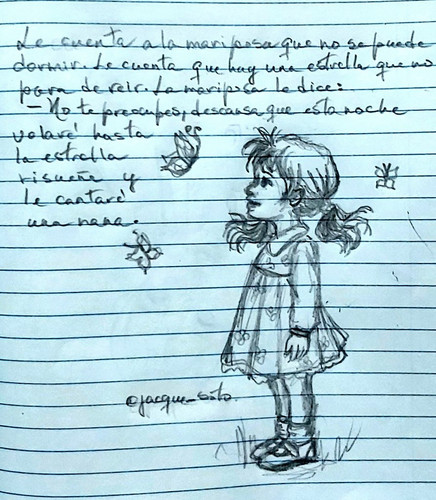 Le cuenta a la mariposa que no se puede
dormir. Le cuenta que hay una estrella que no
para de reir. La mariposa le dice:
- No te preocupes, descansa que esta noche
volaré hasta
la estrella
risueña y
le cantaré
una nana.
@jacque_soto.